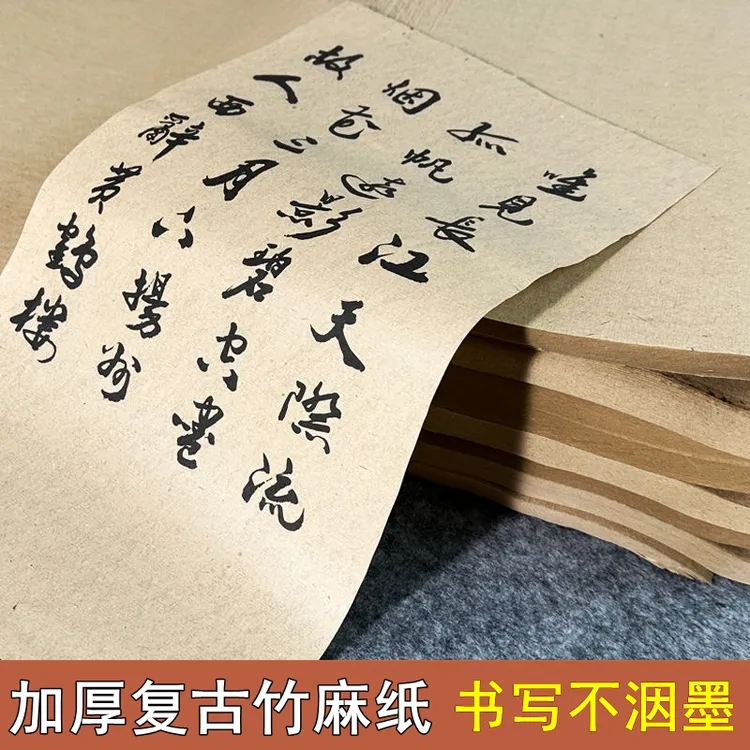 故人西辭黄鶴楼
烟花三月下揚州
孤帆遠影碧空盡
唯見長江天際流
加厚复古竹麻纸 书写不洇墨